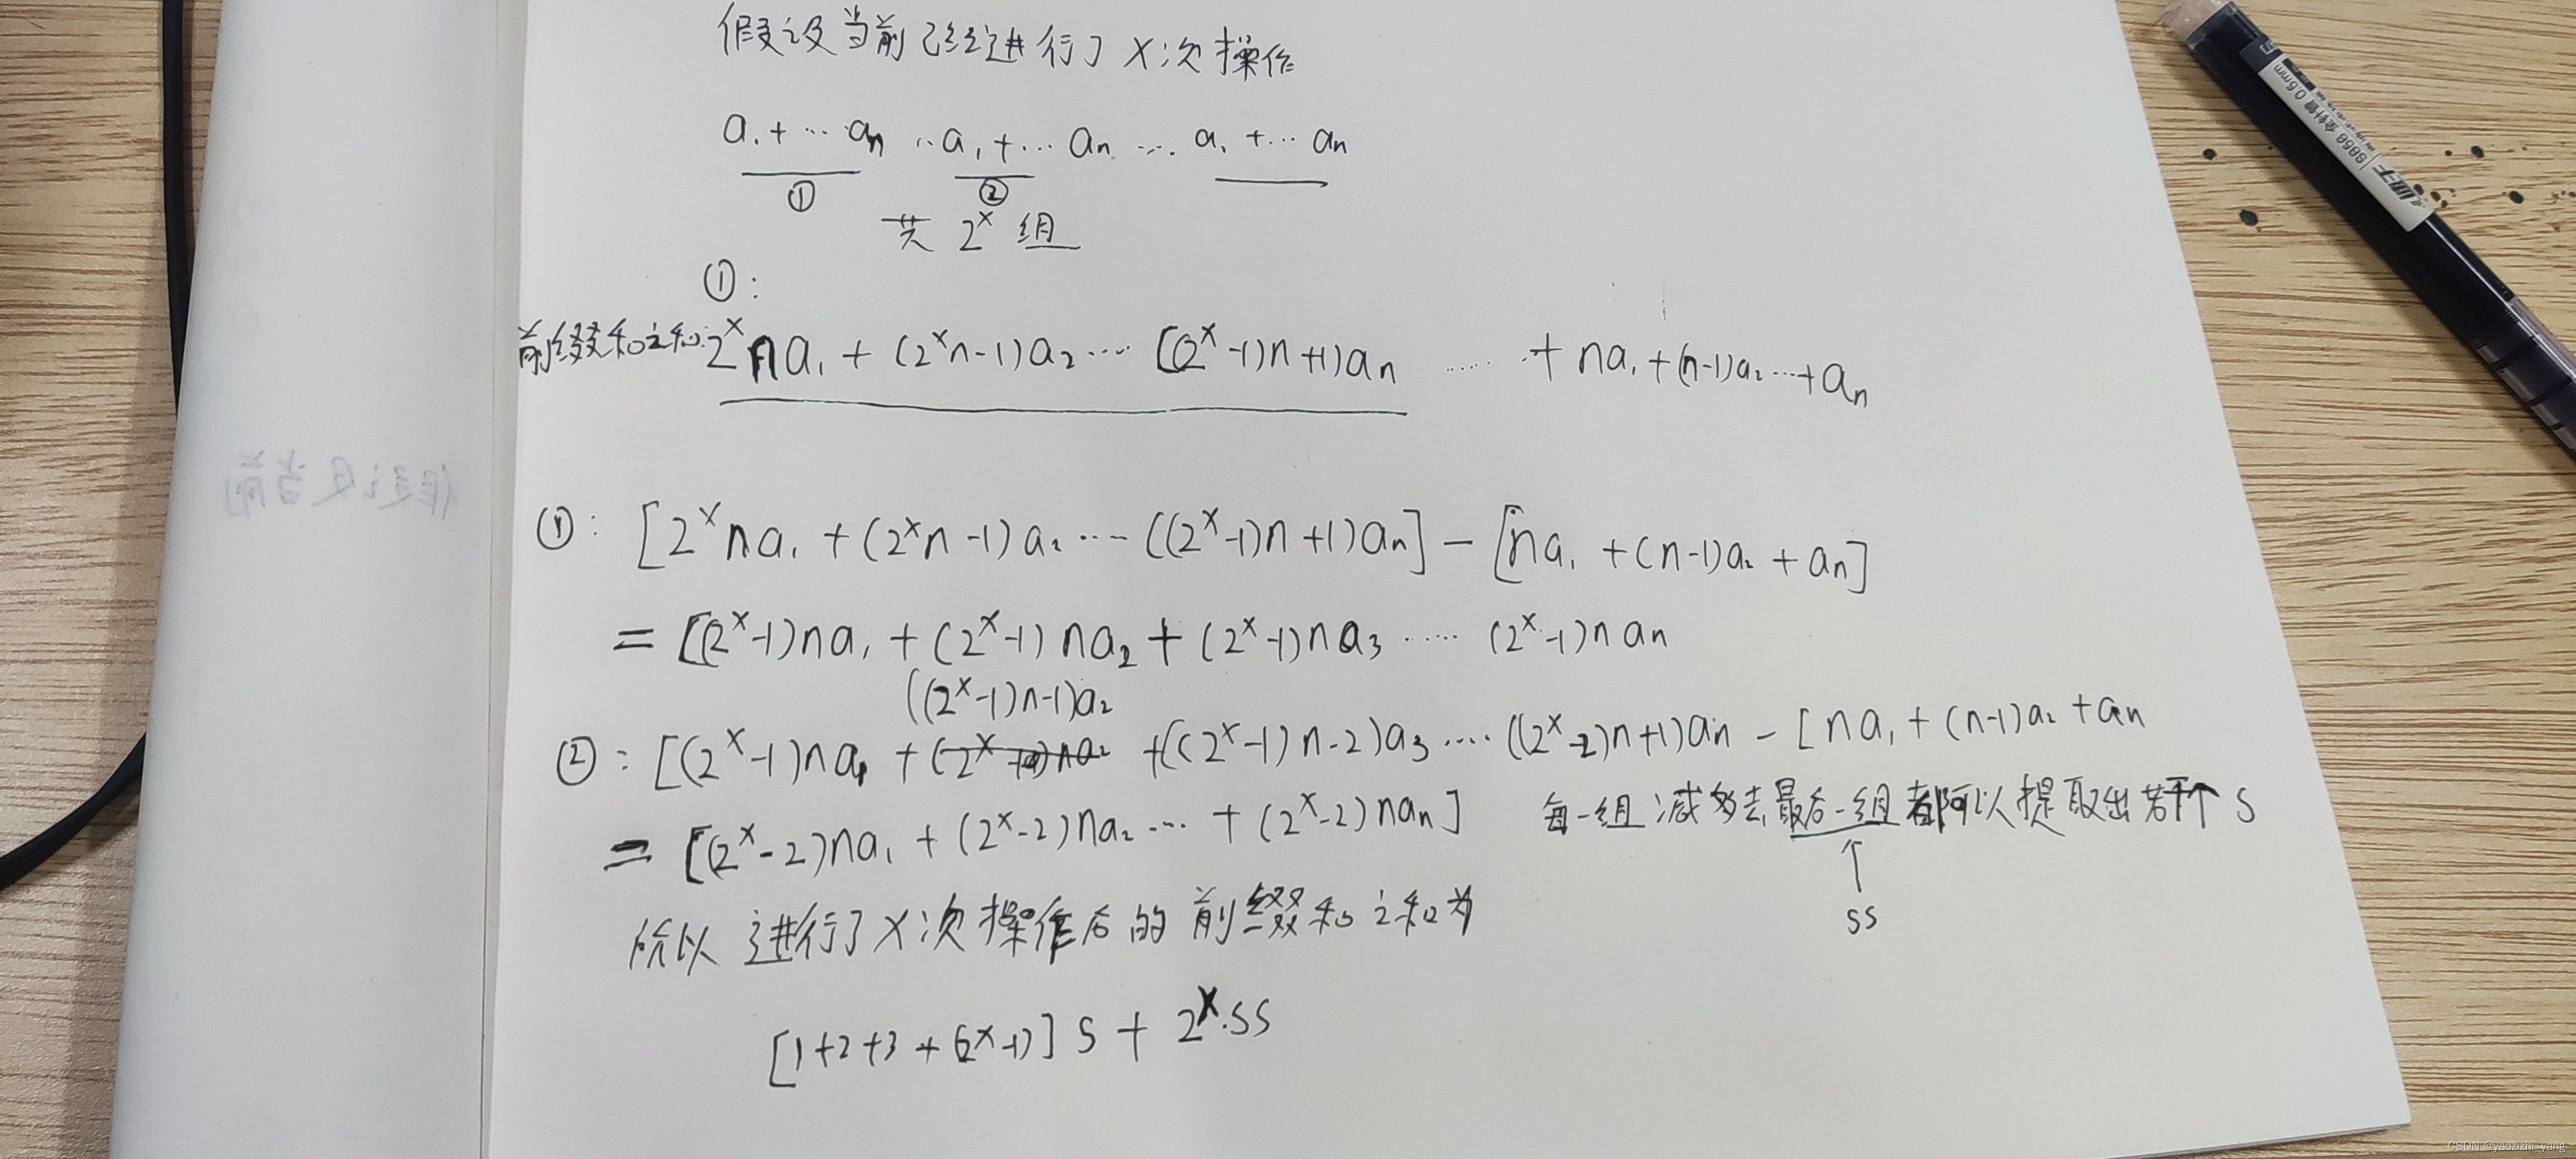 假设当前已经进行了 x次 操作
a₁ + ··· aₙ ··a₁ + ··· aₙ ···· a₁ + ··· aₙ
① ②
共 2ˣ 组
①:
前缀和之和: 2ˣna₁ + (2ˣn-1)a₂ ···· [(2ˣ-1)n+1)aₙ ······ + na₁ + (n-1)a₂ ···+ aₙ
①: [2ˣna₁ + (2ˣn-1)a₂ ···- ((2ˣ-1)n+1)aₙ] - [na₁ + (n-1)a₂ + aₙ]
= [(2ˣ-1)na₁ + (2ˣ-1)na₂ + (2ˣ-1)na₃ ······ (2ˣ-1)naₙ
((2ˣ-1)n-1)a₂
②: [(2ˣ-1)na₁ + +((2ˣ-1)n-2)a₃ ···· ((2ˣ-2)n+1)aₙ - [na₁ + (n-1)a₂ + aₙ
= [(2ˣ-2)na₁ + (2ˣ-2)na₂ ··· + (2ˣ-2)naₙ] 每一组 减去最后一组 都可以提取出若干个 S
↑
SS
所以 进行了x次 操作后的 前缀和之和为
[1+2+3+(2ˣ-1)] S + 2ˣ·SS
假设当前
0.5mm
9856
CSDN @yaozizhi_yang